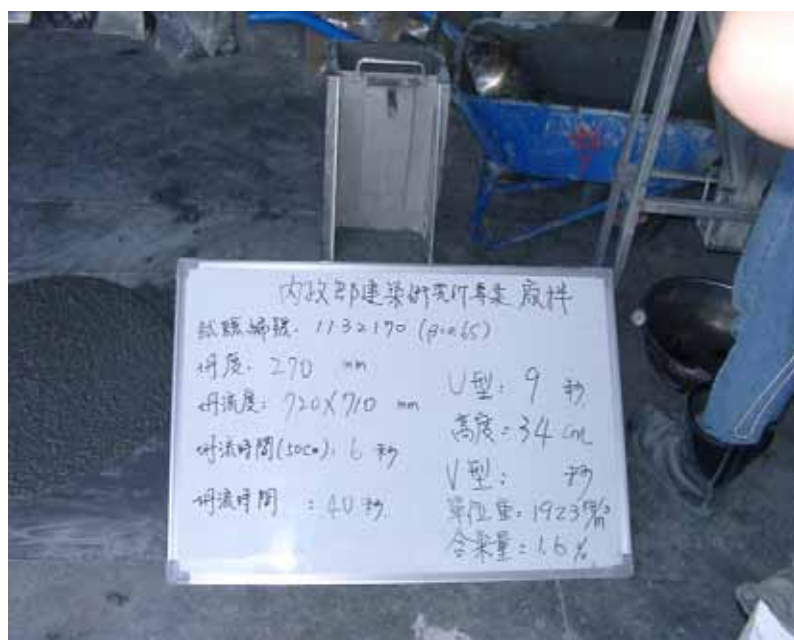 內政部建築研究所專案 廠拌
試驗編號: 1132170 (β=0.65)
坍度: 270 mm
坍流度: 720X710 mm
坍流時間(50cm): 6 秒
坍流時間 : 40 秒
U型: 9 秒
高度: 34 cm
V型: 秒
單位重: 1923 kg/m³
含氣量: 1.6%